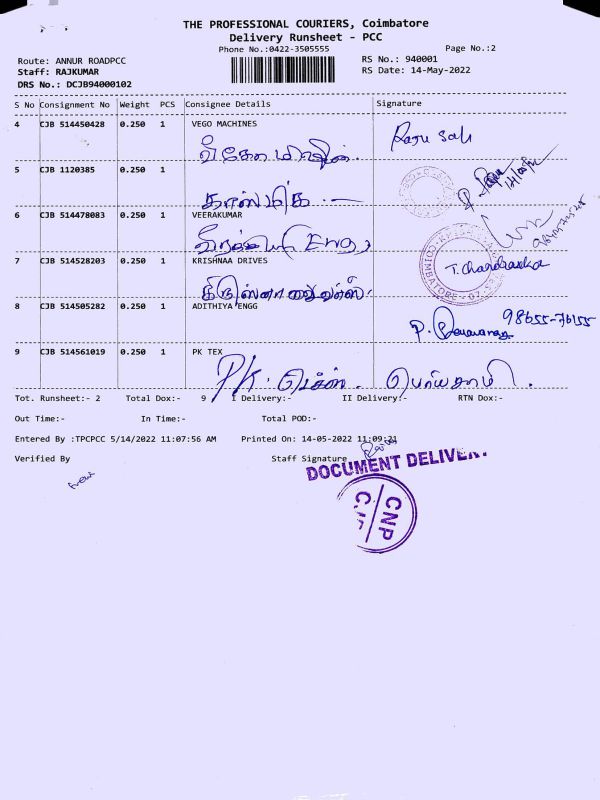 THE PROFESSIONAL COURIERS, Coimbatore
Delivery Runsheet - PCC
Phone No.:0422-3505555
Page No.:2
Route: ANNUR ROADPCC
RS No.: 940001
Staff: RAJKUMAR
RS Date: 14-May-2022
DRS No.: DCJB94000102
S No Consignment No Weight PCS Consignee Details Signature
4 CJB 514450428 0.250 1 VEGO MACHINES
5 CJB 1120385 0.250 1
6 CJB 514478083 0.250 1 VEERAKUMAR
Eng
7 CJB 514528203 0.250 1 KRISHNAA DRIVES
COIMBATORE
8 CJB 514505282 0.250 1 ADITHIYA ENGG
98655-76155
9 CJB 514561019 0.250 1 PK TEX
PK. டெக்ஸ். பெரியசாமி.
Tot. Runsheet:- 2 Total Dox:- 9 I Delivery:- II Delivery:- RTN Dox:-
Out Time:- In Time:- Total POD:-
Entered By :TPCPCC 5/14/2022 11:07:56 AM Printed On: 14-05-2022 11:09:21
Verified By Staff Signature
DOCUMENT DELIVER
CNP